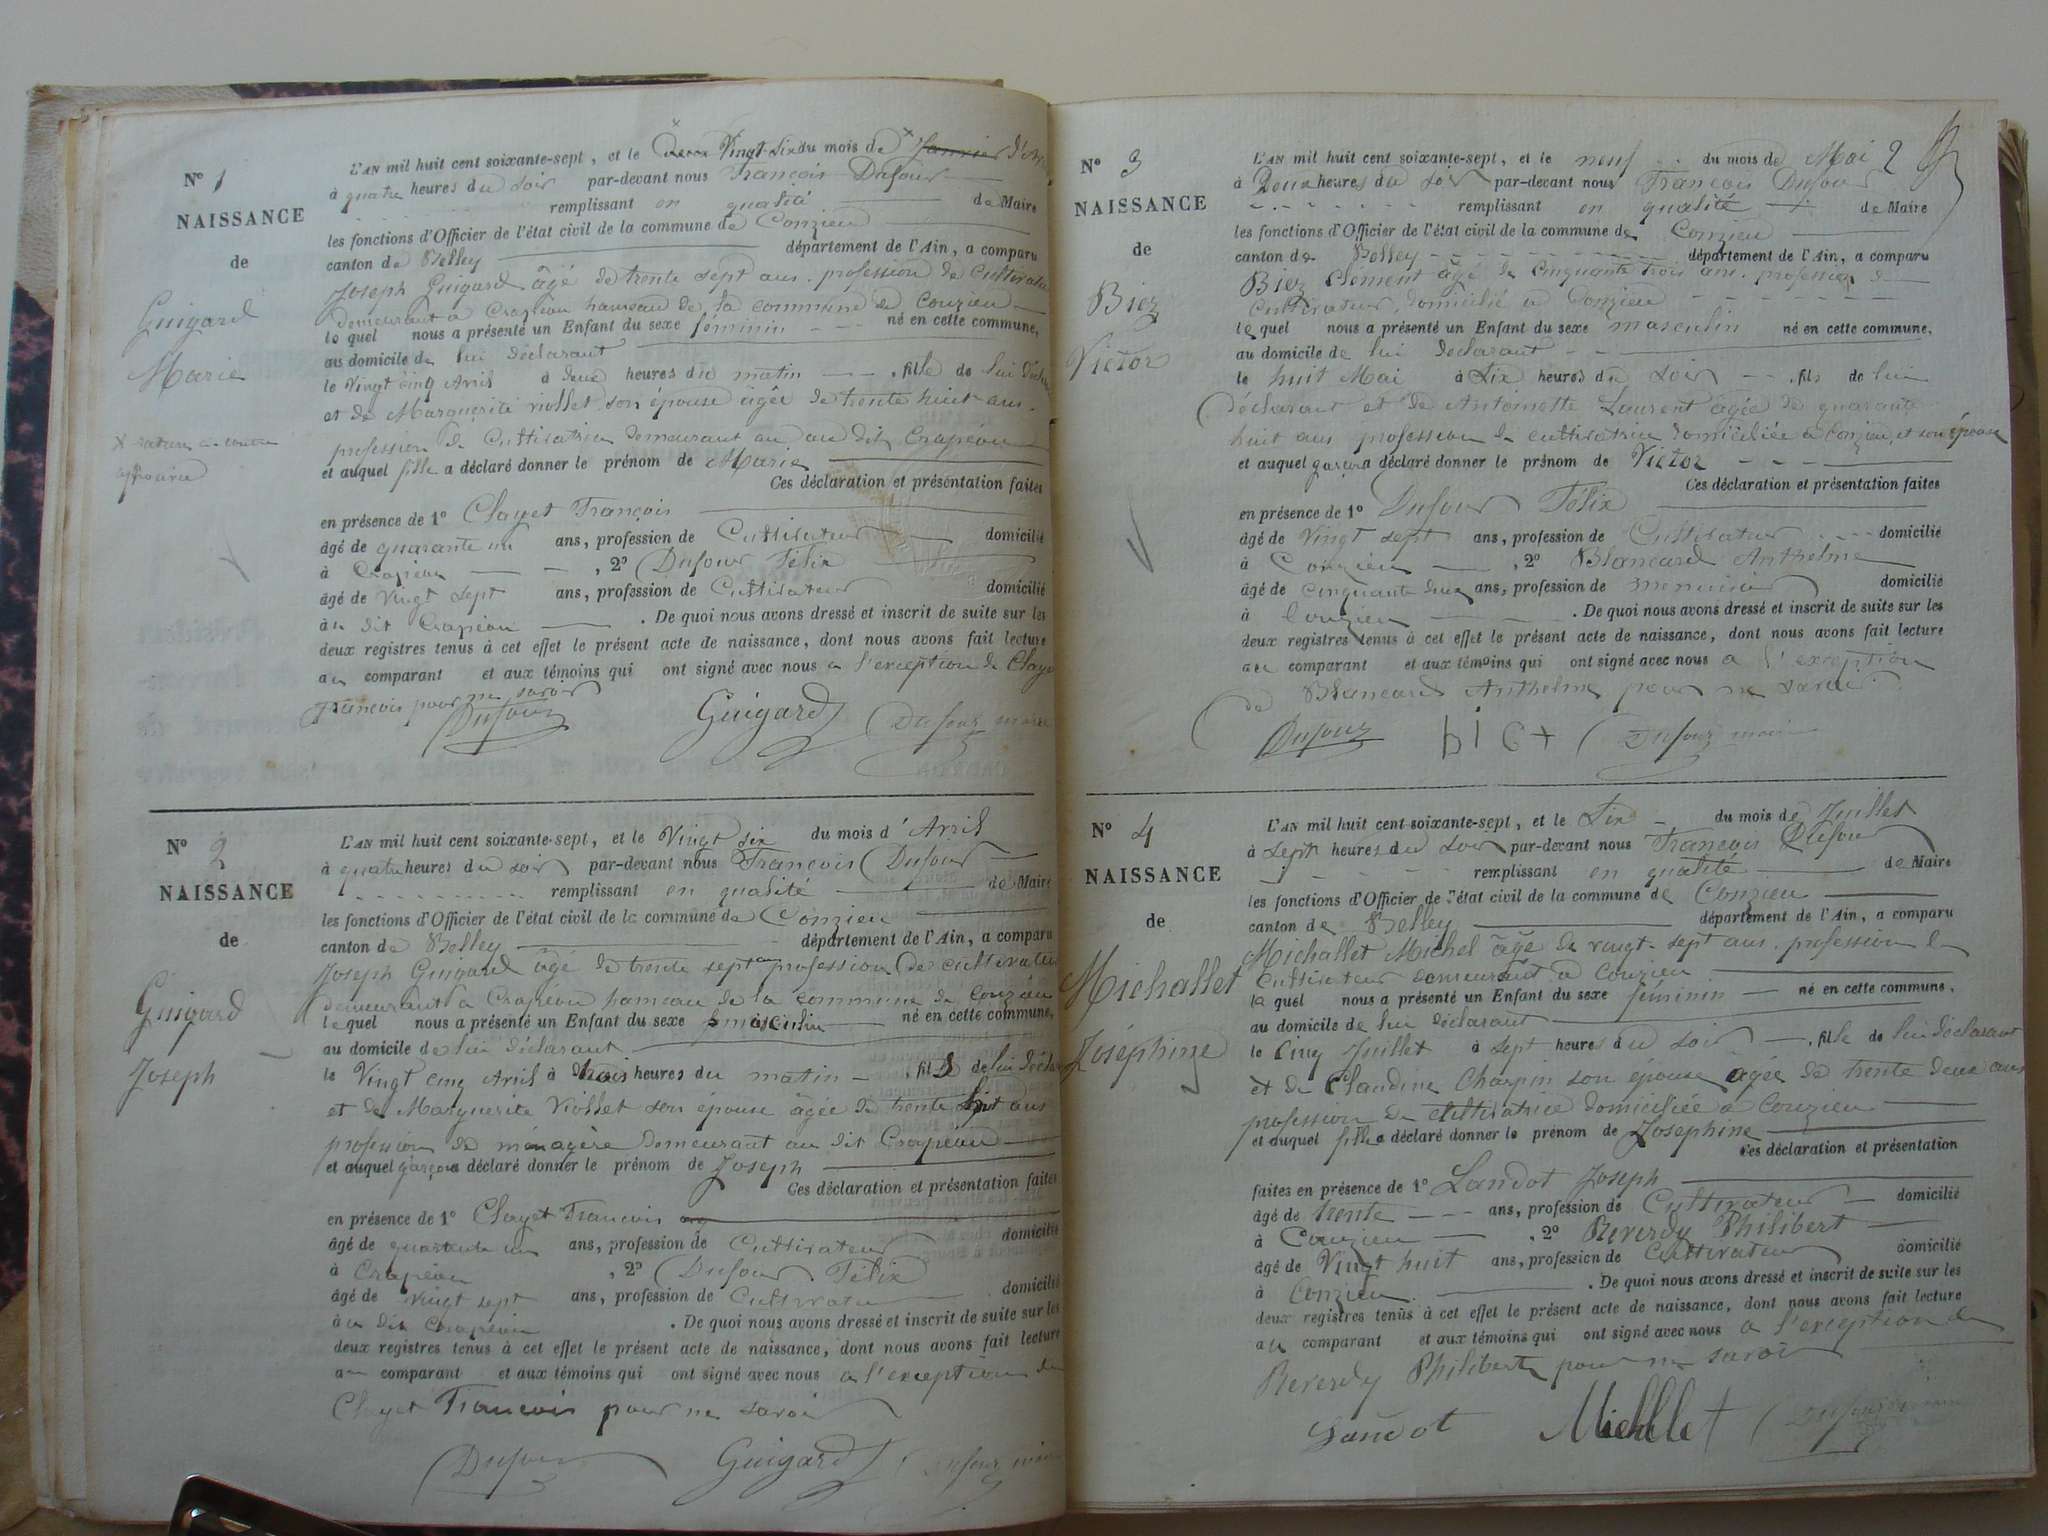 N° 1
NAISSANCE
de
Guigard
Marie
X rature ci-contre
approuvée
L'AN mil huit cent soixante-sept, et le deux Vingt-six du mois de Janvier d'Avril
à quatre heures du soir par-devant nous François Dufour
remplissant en qualité de Maire
les fonctions d'Officier de l'état civil de la commune de Conzieu
canton de Belley département de l'Ain, a comparu
Joseph Guigard âgé de trente sept ans. profession de Cultivateur
demeurant à Crapéou hameau de la commune de Conzieu
lequel nous a présenté un Enfant du sexe féminin né en cette commune,
au domicile de lui déclarant
le Vingt cinq Avril à deux heures du matin, fille de lui décla
et de Marguerite Viollet son épouse âgée de trente huit ans.
profession de Cultivatrice demeurant au au dit Crapéou
et auquel fille a déclaré donner le prénom de Marie
Ces déclaration et présentation faites
en présence de 1° Clayet François
âgé de quarante un ans, profession de Cultivateur domicilié
à Crapéou, 2° Dufour Félix
âgé de Vingt sept ans, profession de Cultivateur domicilié
au dit Crapéou. De quoi nous avons dressé et inscrit de suite sur les
deux registres tenus à cet effet le présent acte de naissance, dont nous avons fait lecture
au comparant et aux témoins qui ont signé avec nous a l'exception de Claye
François pour ne savoir
Dufour Guigard Dufour maire
N° 2
NAISSANCE
de
Guigard
Joseph
L'AN mil huit cent soixante-sept, et le Vingt six du mois d'Avril
à quatre heures du soir par-devant nous François Dufour
remplissant en qualité de Maire
les fonctions d'Officier de l'état civil de la commune de Conzieu
canton de Belley département de l'Ain, a comparu
Joseph Guigard âgé de trente sept an profession de cultivateur
demeurant à Crapéou hameau de la commune de Conzieu
lequel nous a présenté un Enfant du sexe masculin né en cette commune,
au domicile de lui déclarant
le Vingt cinq Avril à trois heures du matin, fils de lui décla
et de Marguerite Viollet son épouse âgée de trente huit ans
profession de ménagère demeurant au dit Crapéou
et auquel garçon a déclaré donner le prénom de Joseph
Ces déclaration et présentation faites
en présence de 1° Clayet François
âgé de quarante un ans, profession de Cultivateur domicilié
à Crapéou, 2° Dufour Félix
âgé de vingt sept ans, profession de Cultivateu domicilié
au dit Crapéou. De quoi nous avons dressé et inscrit de suite sur les
deux registres tenus à cet effet le présent acte de naissance, dont nous avons fait lecture
au comparant et aux témoins qui ont signé avec nous a l'exception de
Clayet François pour ne savoir
Dufour Guigard Dufour maire
N° 3
NAISSANCE
de
Biez
Victor
2
L'AN mil huit cent soixante-sept, et le neuf du mois de Mai
à Deux heures du soir par-devant nous François Dufour
remplissant en qualité de Maire
les fonctions d'Officier de l'état civil de la commune de Conzieu
canton de Belley département de l'Ain, a comparu
Biez Clément âgé de cinquante trois ans. profession de
Cultivateur, domicilié à Conzieu
lequel nous a présenté un Enfant du sexe masculin né en cette commune,
au domicile de lui déclarant
le huit Mai à Six heures du soir, fils de lui
déclarant et de Antoinette Laurent âgée de quarante
huit ans profession de cultivatrice domiciliée à Conzieu et son épouse
et auquel garçon a déclaré donner le prénom de Victor
Ces déclaration et présentation faites
en présence de 1° Dufour Félix
âgé de Vingt sept ans, profession de Cultivateur domicilié
à Conzieu, 2° Blancard Anthelme
âgé de cinquante deux ans, profession de menuisier domicilié
à Conzieu. De quoi nous avons dressé et inscrit de suite sur les
deux registres tenus à cet effet le présent acte de naissance, dont nous avons fait lecture
au comparant et aux témoins qui ont signé avec nous a l'exception
de Blancard Anthelme pour ne savoir.
Dufour Dufour maire
N° 4
NAISSANCE
de
Michallet
Joséphine
L'AN mil huit cent soixante-sept, et le Six du mois de Juillet
à sept heures du soir par-devant nous François Dufour
remplissant en qualité de Maire
les fonctions d'Officier de l'état civil de la commune de Conzieu
canton de Belley département de l'Ain, a comparu
Michallet Michel âgé de vingt-sept ans. profession de
Cultivateur demeurant à Conzieu
lequel nous a présenté un Enfant du sexe féminin né en cette commune,
au domicile de lui déclarant
le Cinq Juillet à sept heures du soir, fille de lui déclarant
et de Claudine Charpin son épouse âgée de trente deux ans
profession de cultivatrice domiciliée à Conzieu
et auquel fille a déclaré donner le prénom de Josephine
Ces déclaration et présentation
faites en présence de 1° Landot Joseph
âgé de trente ans, profession de Cultivateur domicilié
à Conzieu, 2° Reverdy Philibert
âgé de Vingt huit ans, profession de Cultivateur domicilié
à Conzieu. De quoi nous avons dressé et inscrit de suite sur les
deux registres tenus à cet effet le présent acte de naissance, dont nous avons fait lecture
au comparant et aux témoins qui ont signé avec nous a l'exception de
Reverdy Philibert pour ne savoir
Landot Michllet Dufour